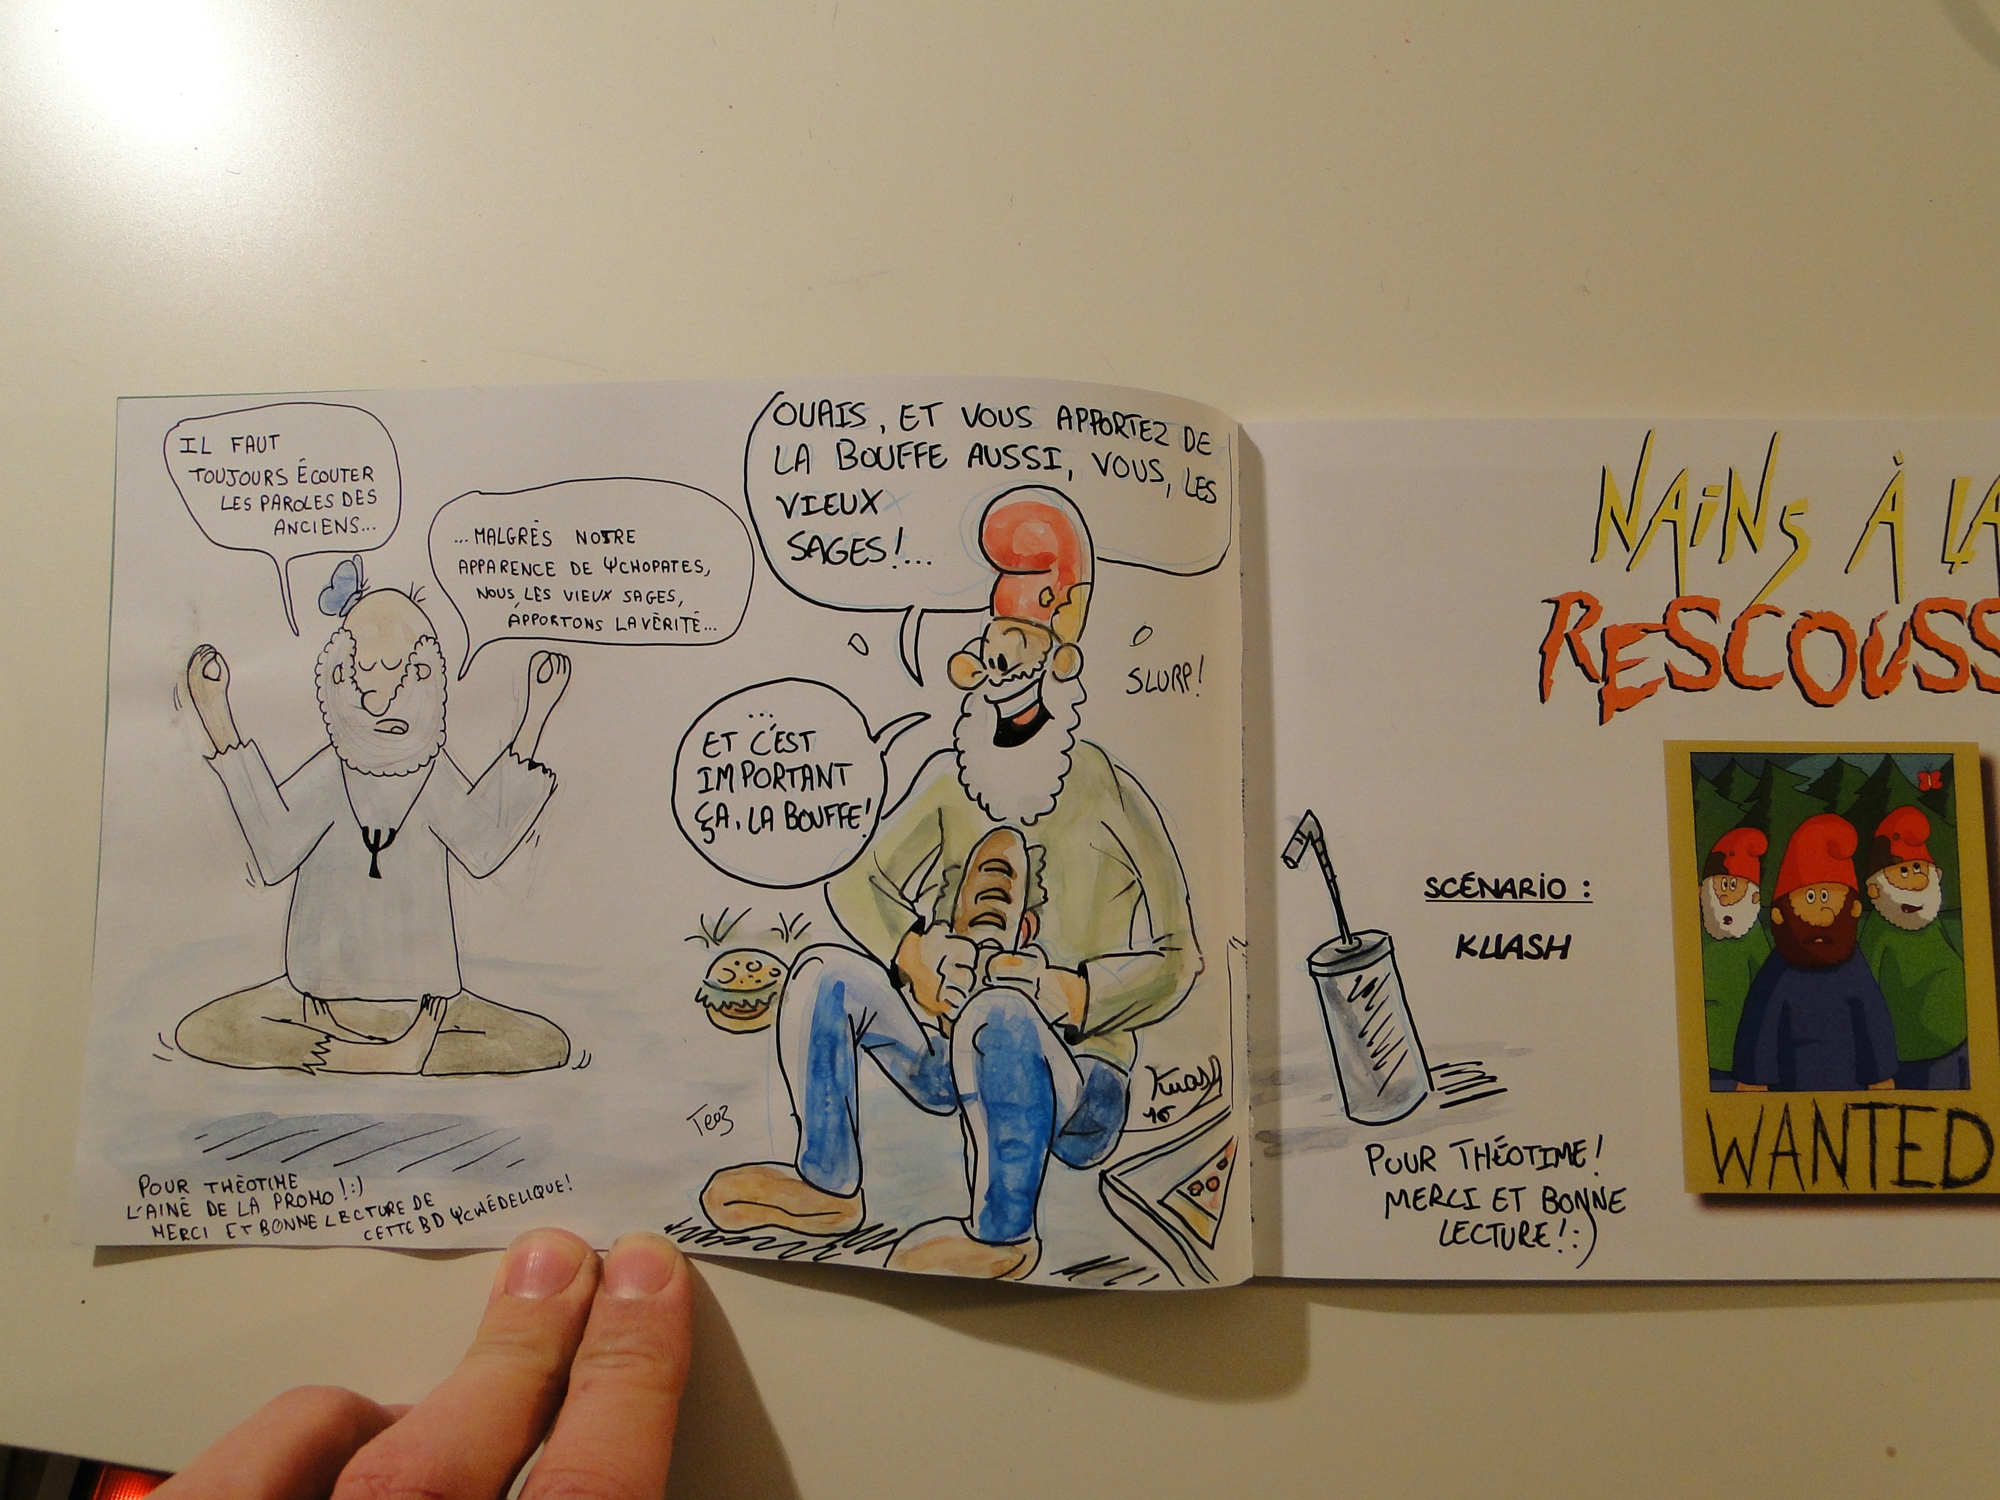 IL FAUT
TOUJOURS ÉCOUTER
LES PAROLES DES
ANCIENS...
...MALGRÈS NOTRE
APPARENCE DE ΨCHOPATES,
NOUS, LES VIEUX SAGES,
APPORTONS LA VÈRITÉ...
OUAIS, ET VOUS APPORTEZ DE
LA BOUFFE AUSSI, VOUS, LES
VIEUX
SAGES!...
...
ET C'EST
IMPORTANT
ÇA, LA BOUFFE!
SLURP!
Teoz
Kuash
16
POUR THÉOTIME
L'AINÉ DE LA PROMO !:)
MERCI ET BONNE LECTURE DE
CETTE BD ΨCHÉDELIQUE!
NAiNS À LA
RESCOUSS
SCÉNARIO :
KUASH
WANTED
POUR THÉOTIME!
MERCI ET BONNE
LECTURE! :)